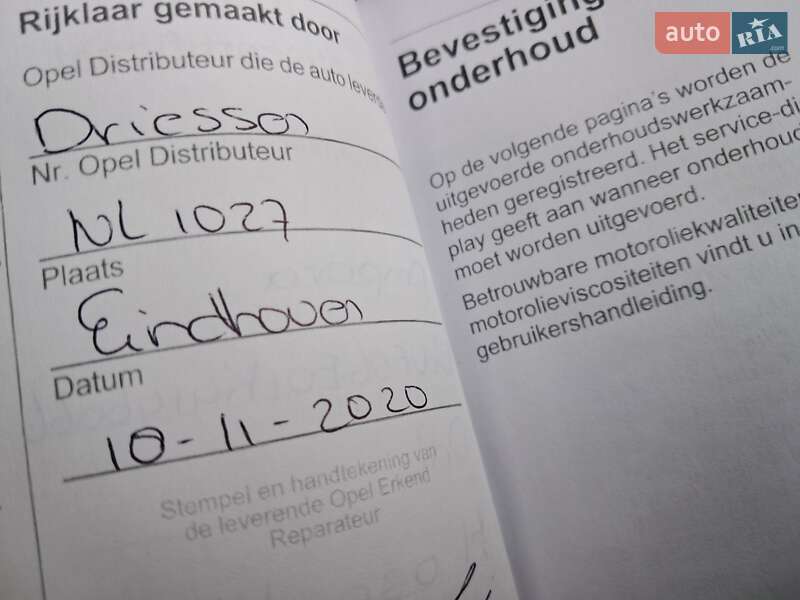 Rijklaar gemaakt door
Opel Distributeur die de auto
Driessen
Nr. Opel Distributeur
NL 1027
Plaats
Eindhoven
Datum
10-11-2020
Stempel en handtekening van
de leverende Opel Erkend
Reparateur
Bevestiging
onderhoud
Op de volgende pagina's worden de
uitgevoerde onderhoudswerkzaam-
heden geregistreerd. Het service-di
play geeft aan wanneer onderhoud
moet worden uitgevoerd.
Betrouwbare motoroliekwaliteiten
motorolieviscositeiten vindt u in
gebruikershandleiding.
auto RIA .com